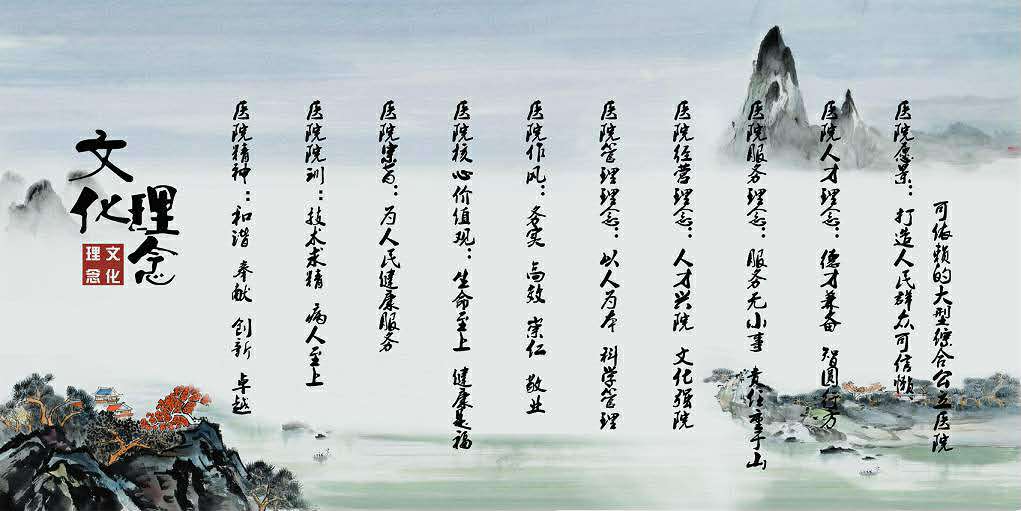 文化
理念
文化
理念
医院精神：和谐 奉献 创新 卓越
医院院训：技术求精 病人至上
医院宗旨：为人民健康服务
医院核心价值观：生命至上 健康是福
医院作风：务实 高效 崇仁 敬业
医院管理理念：以人为本 科学管理
医院经营理念：人才兴院 文化强院
医院服务理念：服务无小事 责任重于山
医院人才理念：德才兼备 智圆行方
医院愿景：打造人民群众可信懒
可依赖的大型综合公立医院